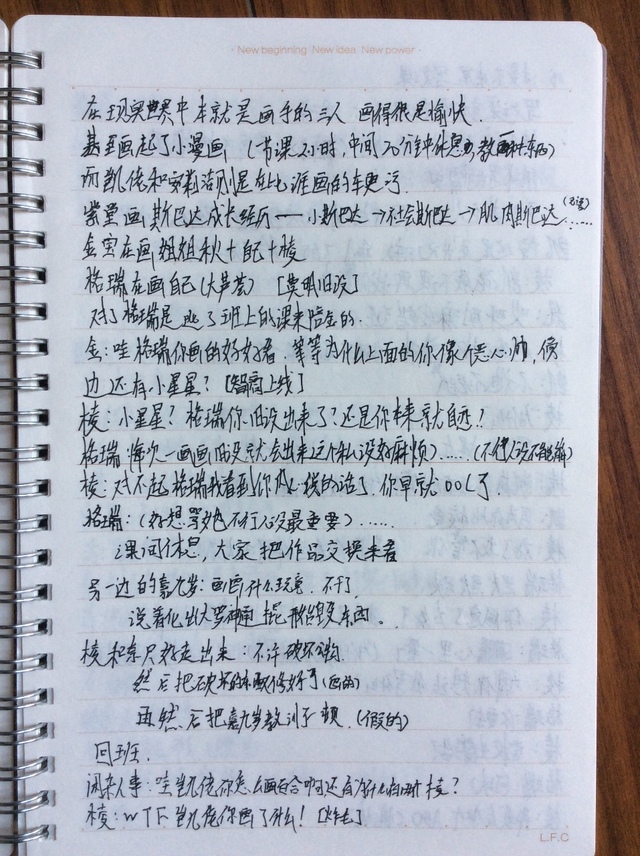 · New beginning New idea New power ·
在现实世界中本就是画手的三人 画得很是愉快.
甚至画起了小漫画 (节课2小时,中间20分钟休息
而凯佬和 则是在比谁画的车更污.
紫堂画斯巴达成长经历——小斯巴达→社会斯巴达→肌肉斯巴达……
金宝在画姐姐秋+自己+棱
格瑞在画自己(大 ) [ 旧设]
对了格瑞是逃了班上的课来陪金的.
金:哇格瑞你画的好好看.等等为什么上面的你像个恶心帅,傍
边还有小星星?[智商上线]
棱:小星星?格瑞你旧设出来了?还是你本来就自恋?
格瑞 每次一画画旧设就会出来这个私设好麻烦)……(不
棱:对不起格瑞我看到你内心 的话了.你早就OOC了.
格瑞:(好想骂她不行人设最重要)……
课间休息,大家把作品交换来看
另一边的嘉九岁:画画什么玩意.不干了,
说着化出大罗神通棍 毁东西。
棱和 只好走出来:不许破坏
然后把破坏的东西修好了(画的)
再然后把嘉九岁教训了一顿.(假的)
回班.
闲杂人事:哇凯佬你怎么画百合啊还有为什么 棱?
棱:WTF凯佬你画了什么![炸毛]
L.F.C